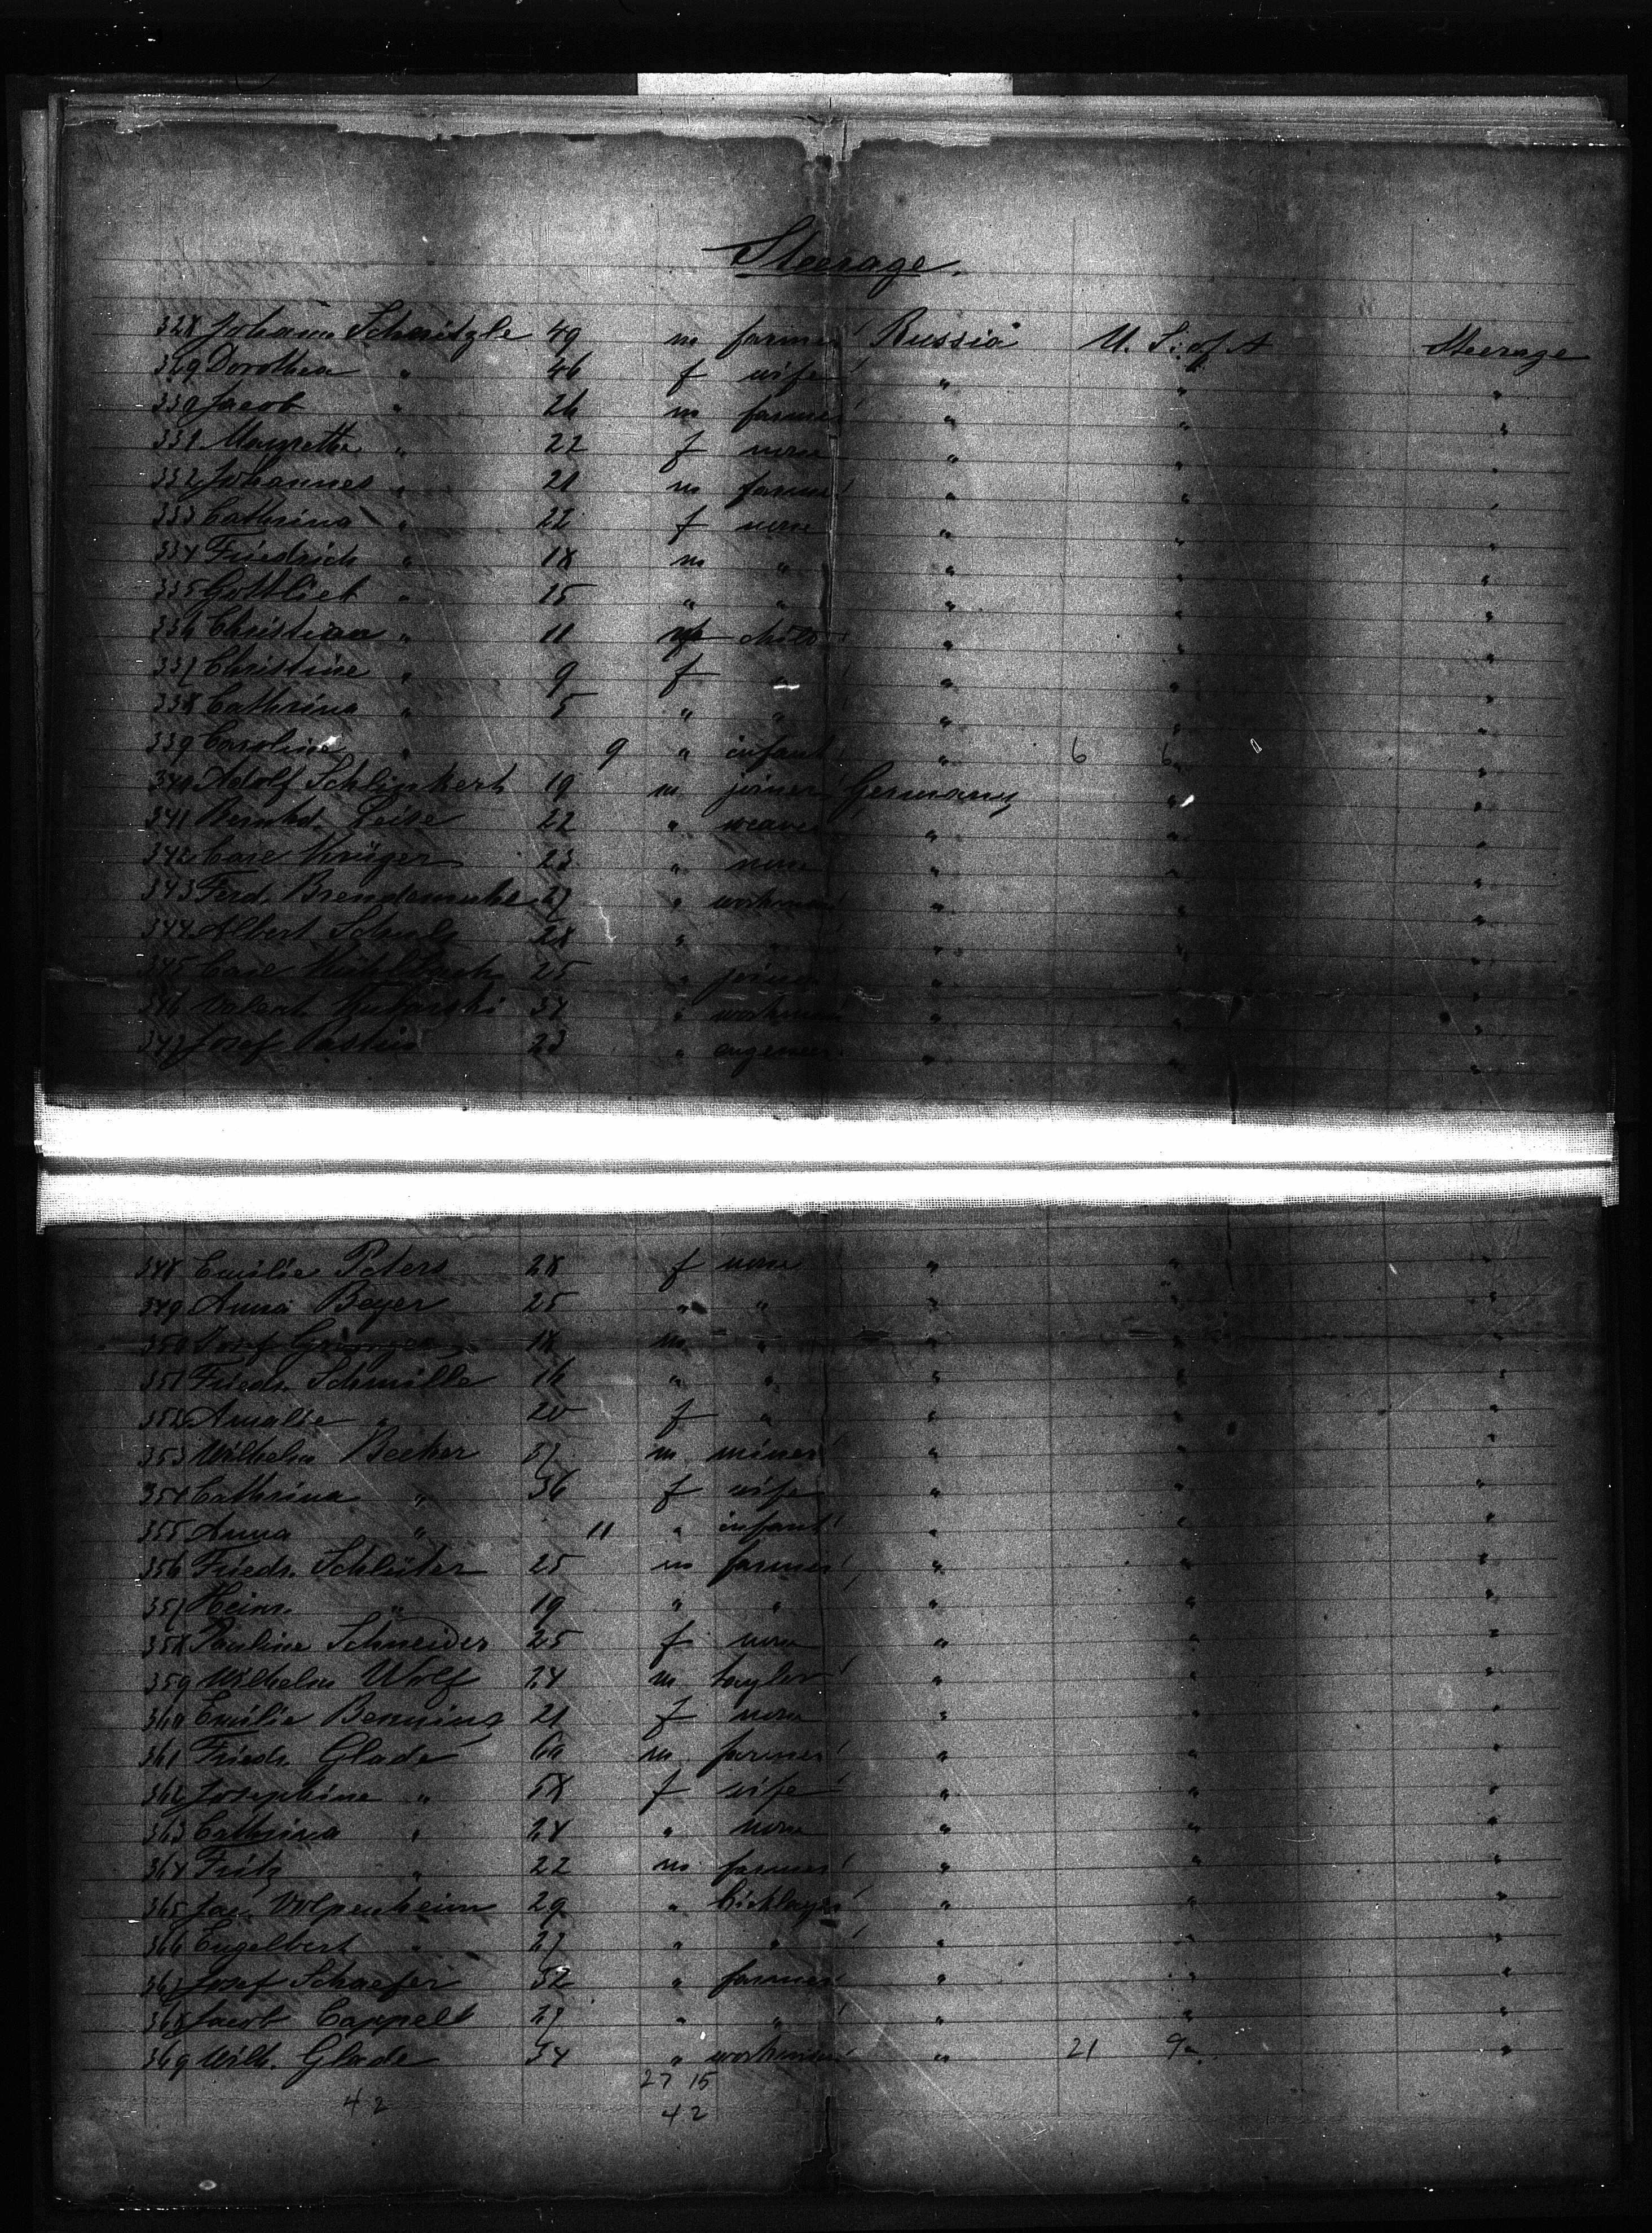 Steerage.
328 Johann Schnitzle 49 m farmer Russia U. S. of A Steerage
329 Dorothea " 46 f wife " " "
330 Jacob " 26 m farmer " " "
331 Magretha " 22 f none " " "
332 Johannes " 21 m farmer " " "
333 Cathrina " 22 f none " " "
334 Friedrich " 18 m " " " "
335 Gottlieb " 15 " " " " "
336 Christian " 11 child " " "
337 Christine " 9 f " " " "
338 Cathrina " 5 " " " " "
339 Caroline " 9 " infant " 6 6 " "
340 Adolf Schlinkert 19 m joiner Germany " "
341 Bernhd. Leise 22 " weaver " " "
342 Carl Krüger 23 " none " " "
343 Ferd. Brendemuhl 27 " workman " " "
344 Albert Schulz 28 " " " " "
345 Carl 25 " joiner " " "
346 34 " workman " " "
347 Josef 23 " engeneer " " "
348 Emilie Peters 28 f none " " "
349 Anna Beyer 25 " " " " "
350 Josef 18 m " " " "
351 Friedr. Schmille 16 " " " " "
352 Amalie " 20 f " " " "
353 Wilhelm Becker 37 m miner " " "
354 Cathrina " 36 f wife " " "
355 Anna " 11 " infant " " "
356 Friedr. Schlüter 25 m farmer " " "
357 Heinr. " 19 " " " " "
358 Pauline Schneider 25 f none " " "
359 Wilhelm Wolf 24 m taylor " " "
360 Emilie Benning 21 f none " " "
361 Friedr. Glade 60 m farmer " " "
362 Josephine " 58 f wife " " "
363 Cathrina " 24 " none " " "
364 Fritz " 22 m farmer " " "
365 Jac. Volpenheim 29 " bicklayer " " "
366 Engelbert " 27 " " " " "
367 Josef Schaefer 32 " farmer " " "
368 Jacob Cappell 27 " " " " "
369 Wilh. Glade 34 " workman " 21 9 " "
27 15
42 42